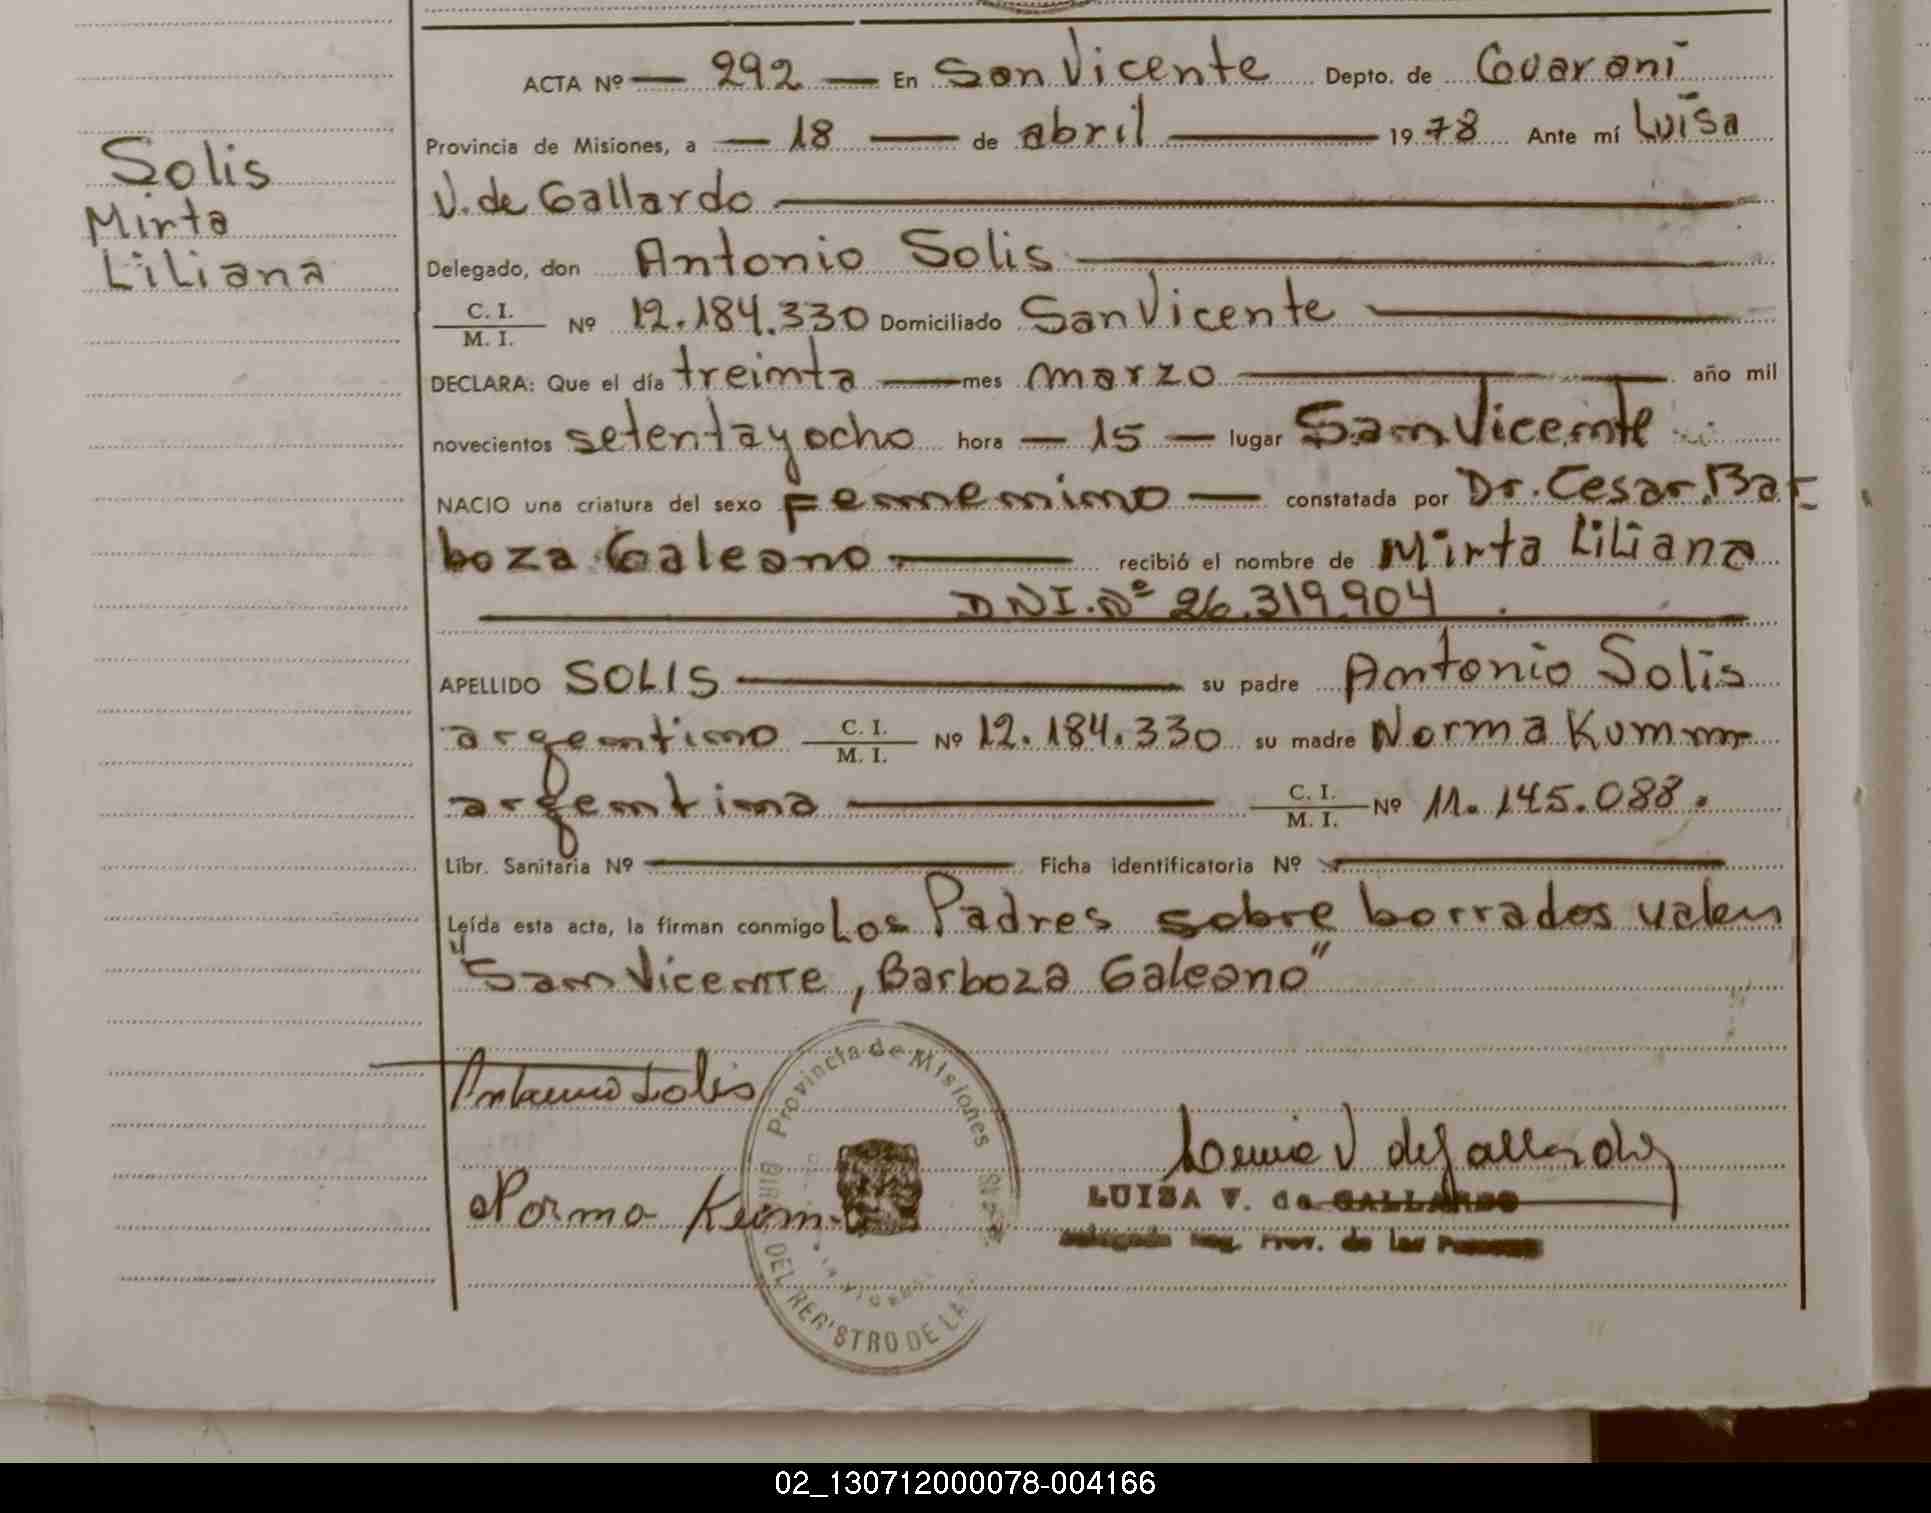 ACTA Nº — 292 — En San Vicente Depto. de Guaraní
Provincia de Misiones, a — 18 — de abril — 1978 Ante mí Luisa
V. de Gallardo
Delegado, don Antonio Solis
C. I.
M. I. Nº 12.184.330 Domiciliado San Vicente
DECLARA: Que el día treinta — mes marzo — año mil
novecientos setenta y ocho hora — 15 — lugar San Vicente
NACIO una criatura del sexo Femenino — constatada por Dr. Cesar Bar-
boza Galeano — recibió el nombre de Mirta Liliana
DNI. Nº 26.319.904
APELLIDO SOLIS — su padre Antonio Solis
argentino C. I. M. I. Nº 12.184.330 su madre Norma Kumm
argentina — C. I. M. I. Nº 11.145.088.
Libr. Sanitaria Nº — Ficha identificatoria Nº —
Leída esta acta, la firman conmigo Los Padres sobre borrados valen
"San Vicente, Barboza Galeano"
Solis
Mirta
Liliana
Antonio Solis
Norma Kum
Provincia de Misiones
DEL REGISTRO DE LA
Luisa V de Gallardo
LUISA V. de GALLARDO
Delegada Reg. Prov. de las Personas
02_130712000078-004166